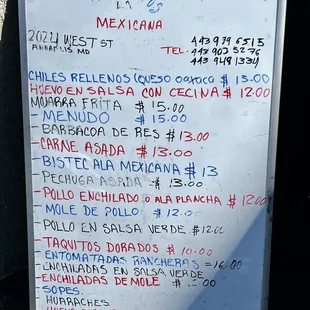 LA
MEXICANA
2024 WEST ST
ANNAPOLIS MD
443 979 6515
TEL. 443 903 5276
443 948 1334
CHILES RELLENOS (QUESO OAXACO $ 13.00
HUEVO EN SALSA CON CECINA $ 12.00
MOJARRA FRITA $ 15.00
- MENUDO $ 15.00
- BARBACOA DE RES $ 13.00
- CARNE ASADA $ 13.00
- BISTEC ALA MEXICANA $ 13
PECHUGA ASADA $ 13.00
- POLLO ENCHILADO O ALA PLANCHA $ 12.00
- MOLE DE POLLO $ 12.00
POLLO EN SALSA VERDE $ 12.00
- TAQUITOS DORADOS $ 10.00
- ENTOMATADAS RANCHERAS = 16.00
- ENCHILADAS EN SALSA VERDE
- ENCHILADAS DE MOLE $
- SOPES.
- HUARACHES.